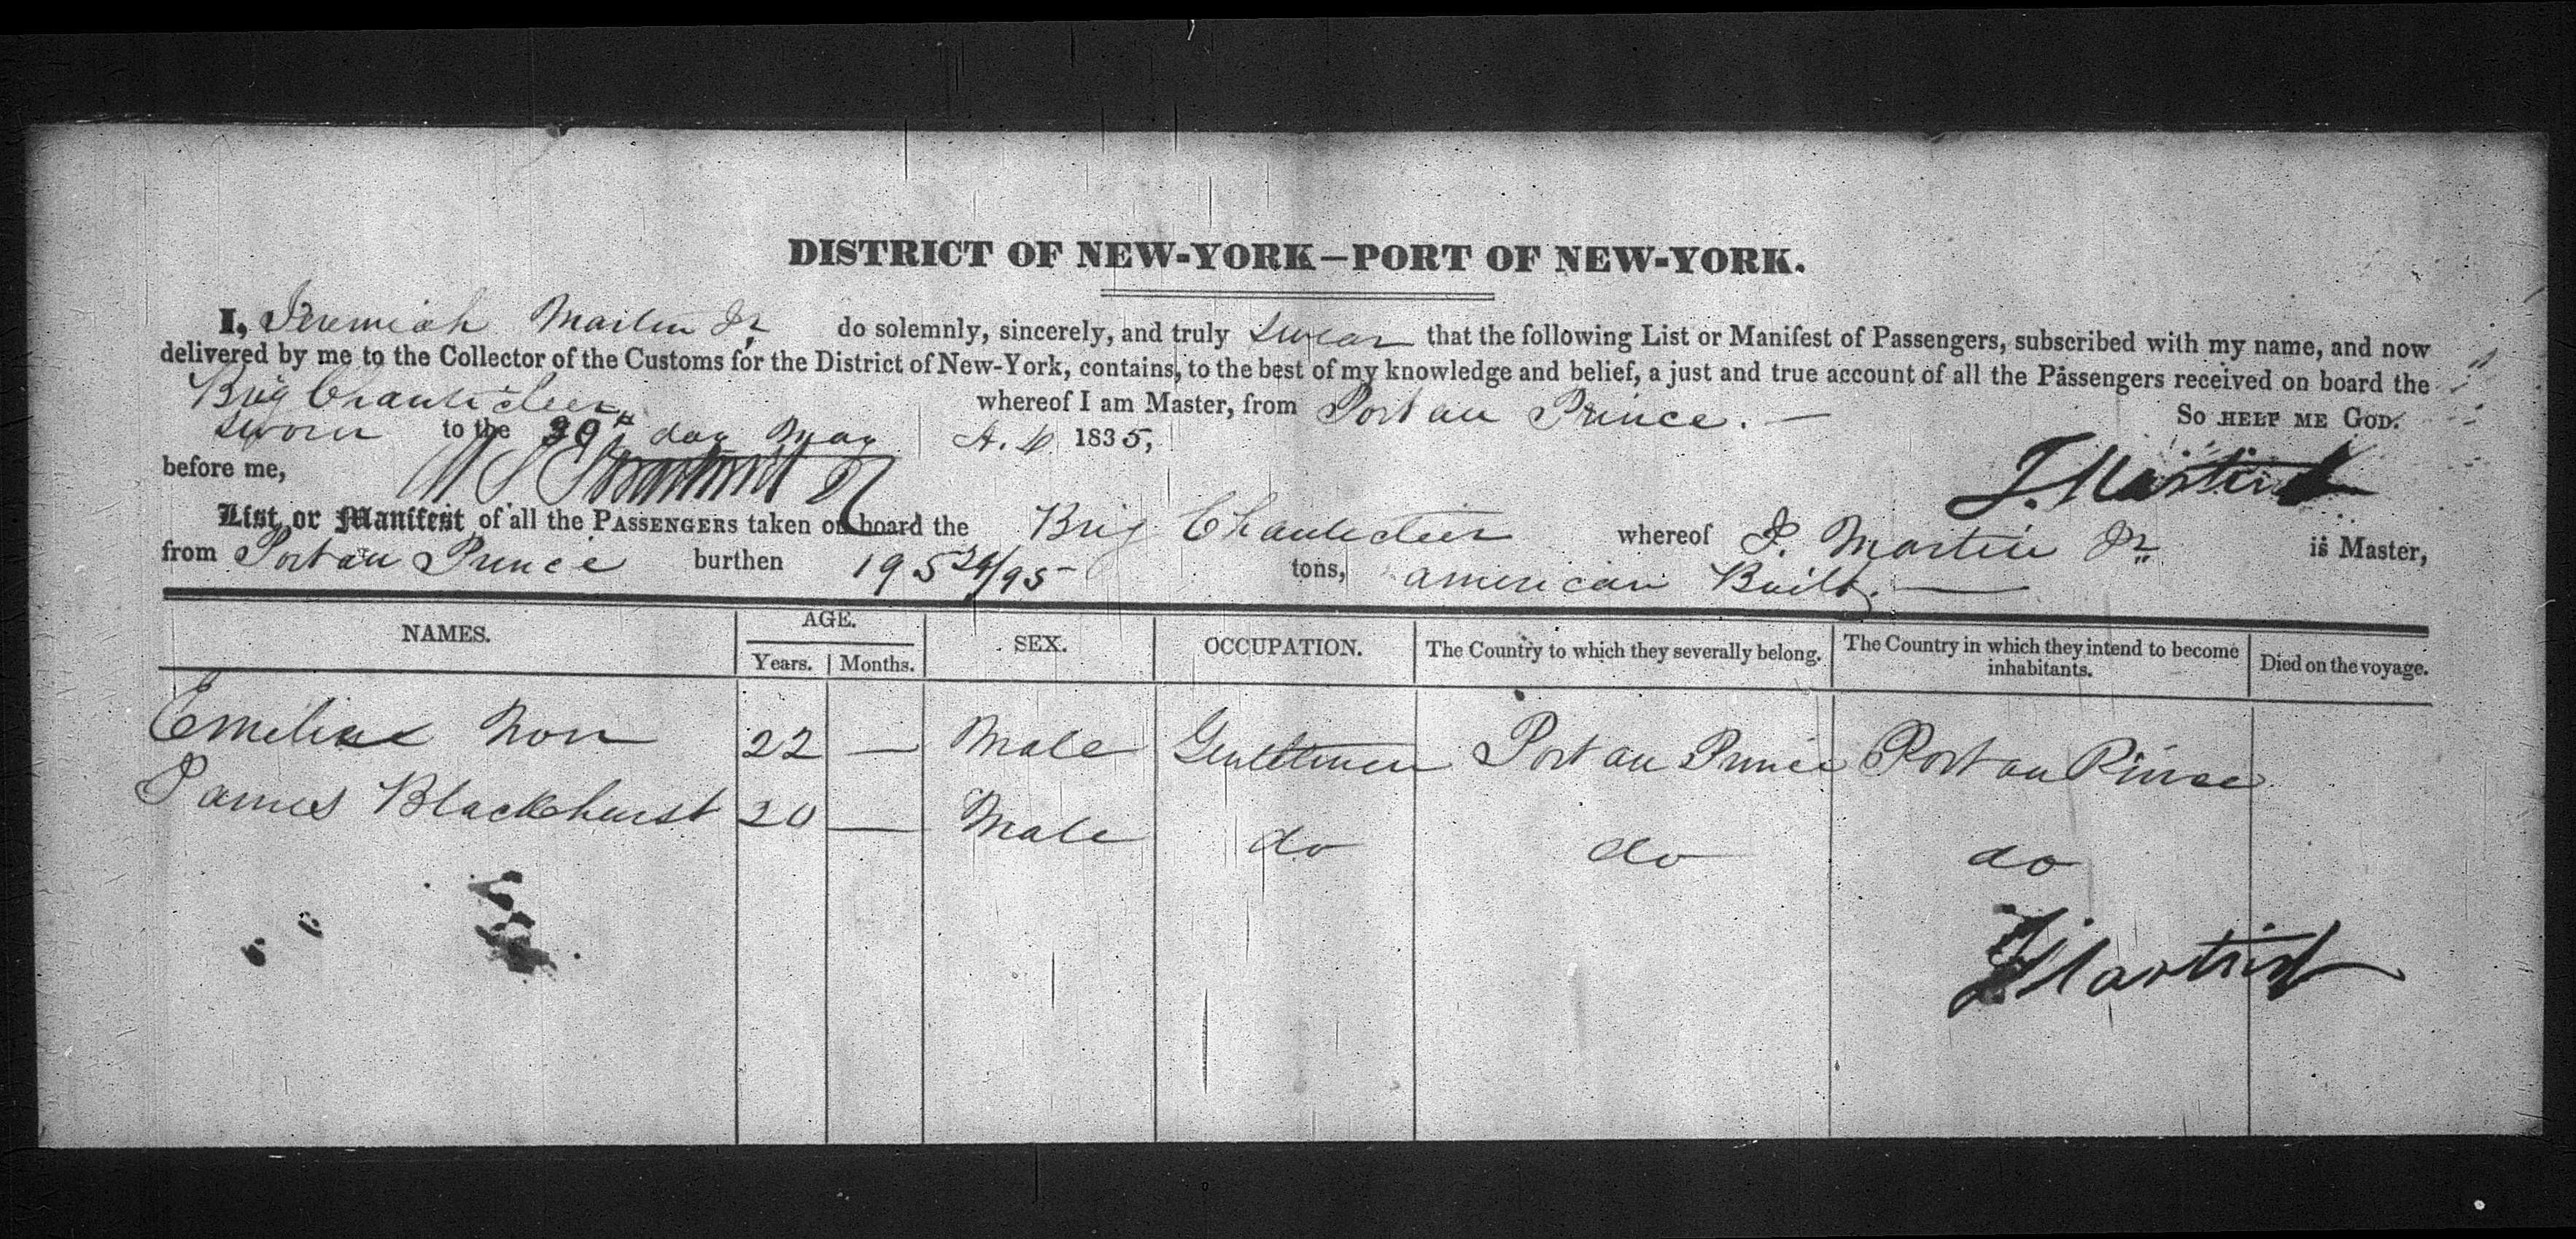 DISTRICT OF NEW-YORK—PORT OF NEW-YORK.
I, Jeremiah Martin Jr do solemnly, sincerely, and truly swear that the following List or Manifest of Passengers, subscribed with my name, and now
delivered by me to the Collector of the Customs for the District of New-York, contains, to the best of my knowledge and belief, a just and true account of all the Passengers received on board the
Brig Chanticleer whereof I am Master, from Port au Prince. — So HELP ME GOD.
sworn to the 30th day May A.D. 1835,
before me,
J. Martin Jr
List or Manifest of all the PASSENGERS taken on board the Brig Chanticleer whereof J. Martin Jr is Master,
from Port au Prince burthen 195 24/95 tons, american Built. —
NAMES. AGE. SEX. OCCUPATION. The Country to which they severally belong. The Country in which they intend to become inhabitants. Died on the voyage.
Years. Months.
22 — Male Gentlemen Port au Prince Port au Prince
James Blackhurst 20 — Male do do do
J Martin Jr